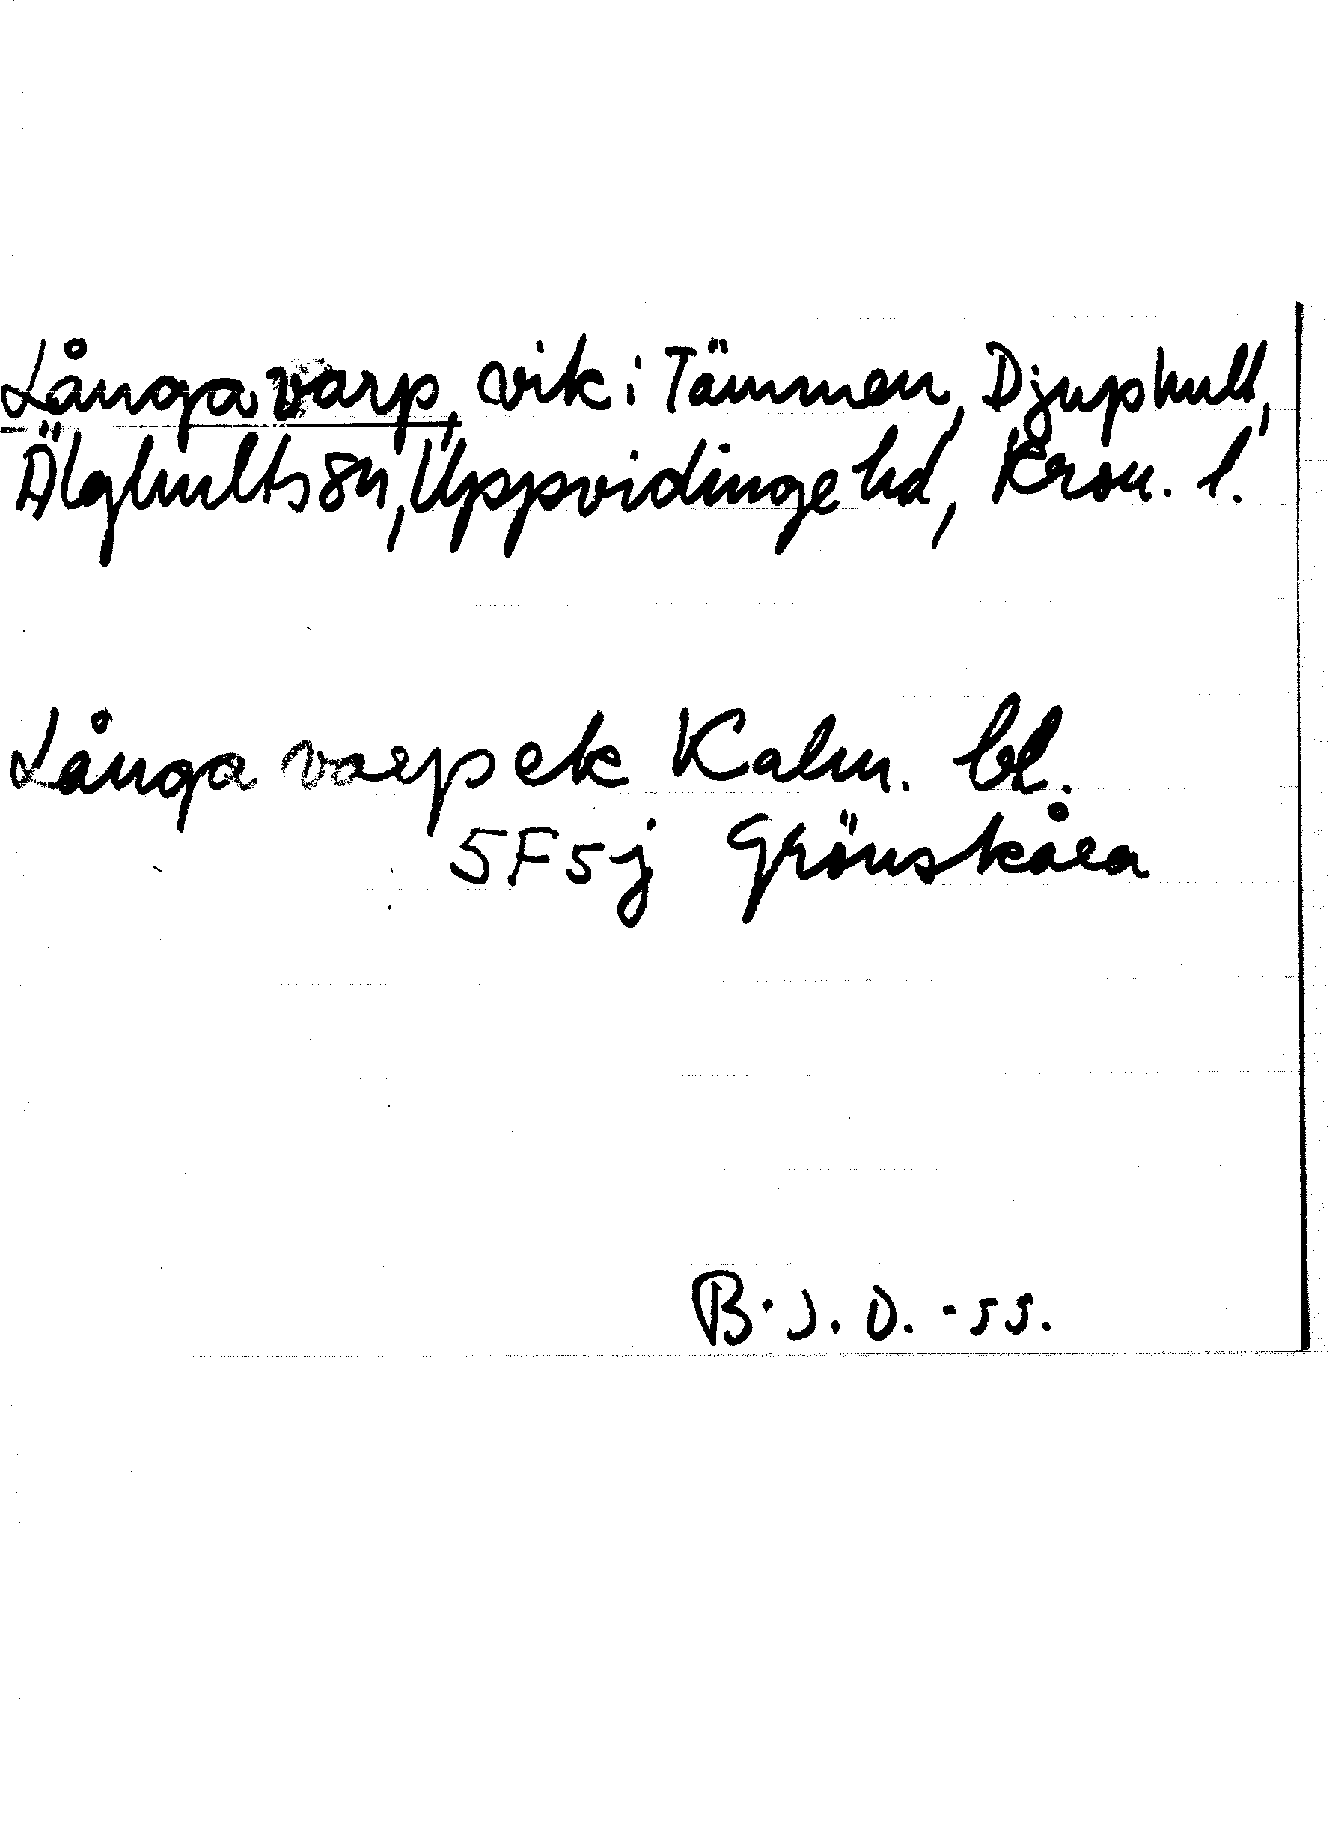 Långavarp, vik i Tämmen, Djuphult,
Älghults sn, Uppvidinge hd, Kron. l.
Långa varp ek Kalm. bl.
5F5j Grönskåra
B.J.O. -55.